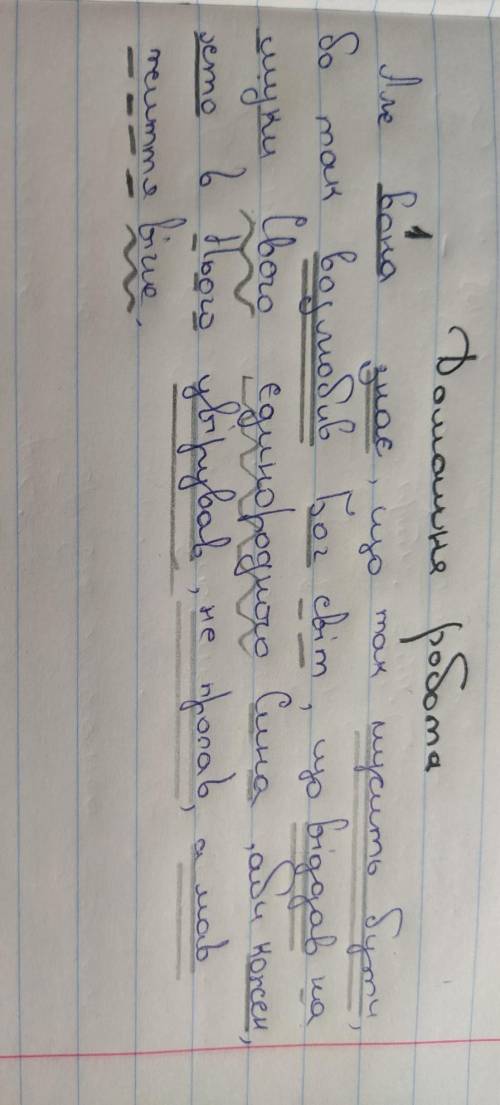 Домашня робота
Але вона 1 знає, що так мусить бути,
бо так возлюбив Бог світ, що віддав на
муки Свого єдинородного Сина, аби кожен,
хто в Нього увірував, не пропав, а мав
життя вічне.